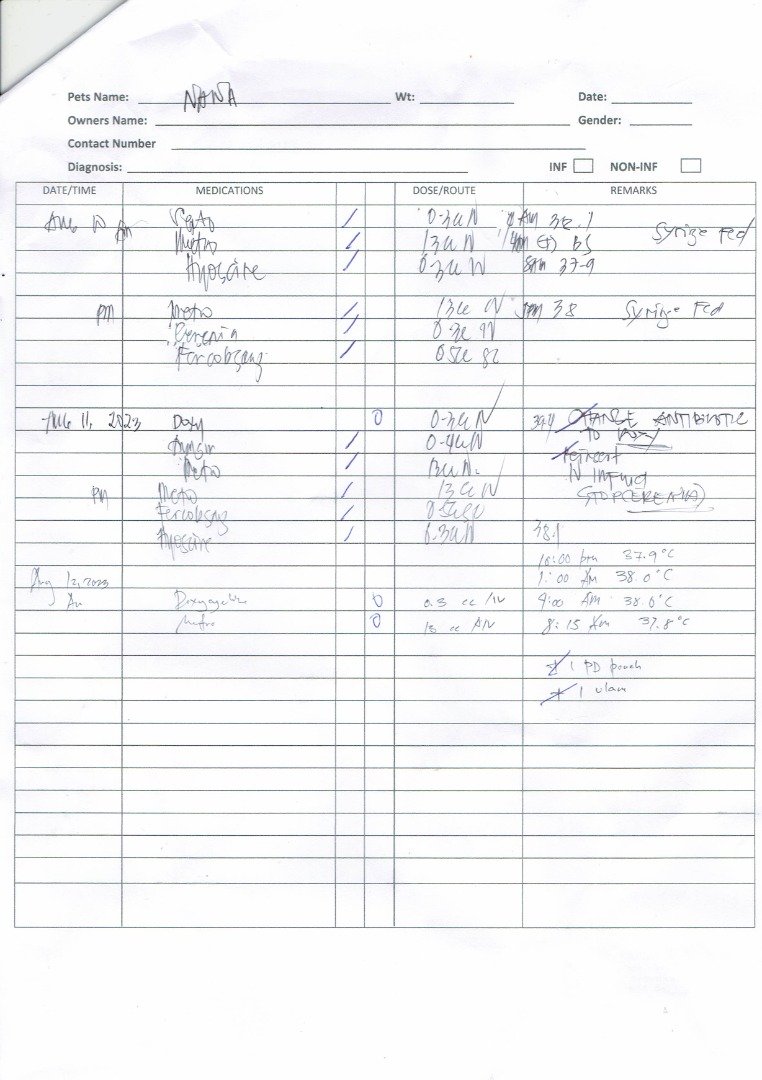 Pets Name: NANA Wt: Date:
Owners Name: Gender:
Contact Number
Diagnosis: INF NON-INF
DATE/TIME MEDICATIONS DOSE/ROUTE REMARKS
Aug 10 AM / 0.3cc IV 8 AM 38.1 Syringe Fed
Metro / 13cc IV
Hyoscine / 0.3cc IV 37.9
PM Metro / 13cc IV 38 Syringe Fed
Cerenia /
Fercobsang /
Aug 11, 2023 Doxy 0 0.3cc IV 39.4 CHANGE ANTIBIOTIC
/ 0.4cc IV TO Doxy
Metro / 13cc IV
PM Metro / 13cc IV STOP CERENIA
Fercobsang /
Hyoscine / 0.3cc IV 38.1
10:00 pm 37.9°C
Aug 12, 2023 1:00 AM 38.0°C
AM Doxycycline 0 0.3 cc IV 4:00 AM 38.6°C
Metro 0 13 cc IV 8:15 AM 37.8°C
1 PD pouch
1 ulam